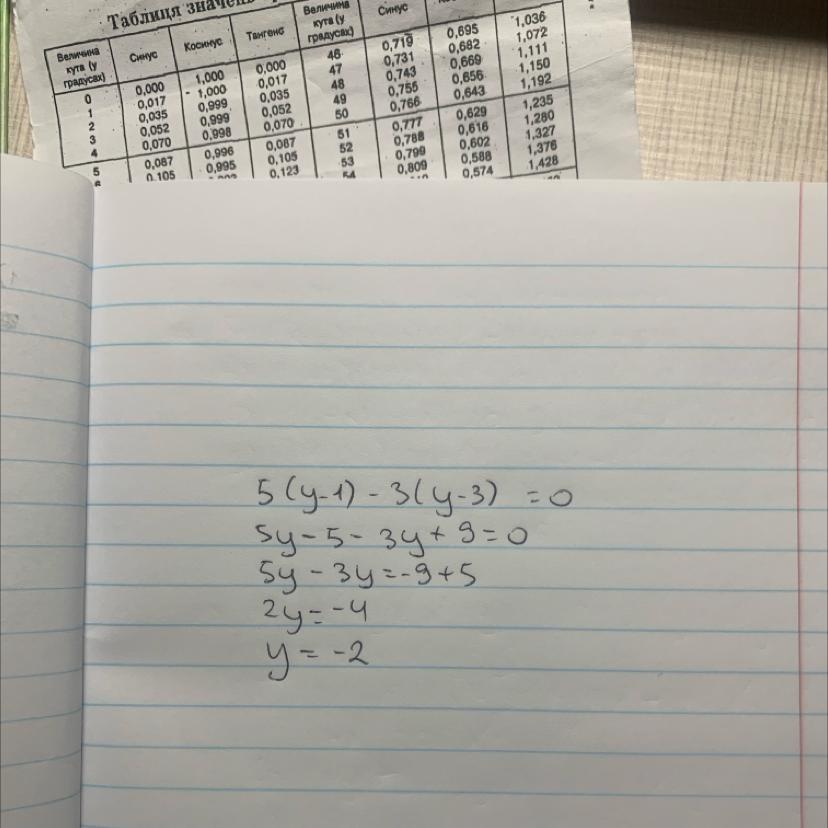 Таблиця значень
Величина кута (у градусах) Синус Косинус Тангенс Величина кута (у градусах) Синус
0 0,000 1,000 0,000 46 0,719 0,695 1,036
1 0,017 1,000 0,017 47 0,731 0,682 1,072
2 0,035 0,999 0,035 48 0,743 0,669 1,111
3 0,052 0,999 0,052 49 0,755 0,656 1,150
4 0,070 0,998 0,070 50 0,766 0,643 1,192
5 0,087 0,996 0,087 51 0,777 0,629 1,235
0,105 0,995 0,105 52 0,788 0,616 1,280
0,123 53 0,799 0,602 1,327
54 0,809 0,588 1,376
0,574 1,428
5(y-1) - 3(y-3) = 0
5y - 5 - 3y + 9 = 0
5y - 3y = -9 + 5
2y = -4
y = -2